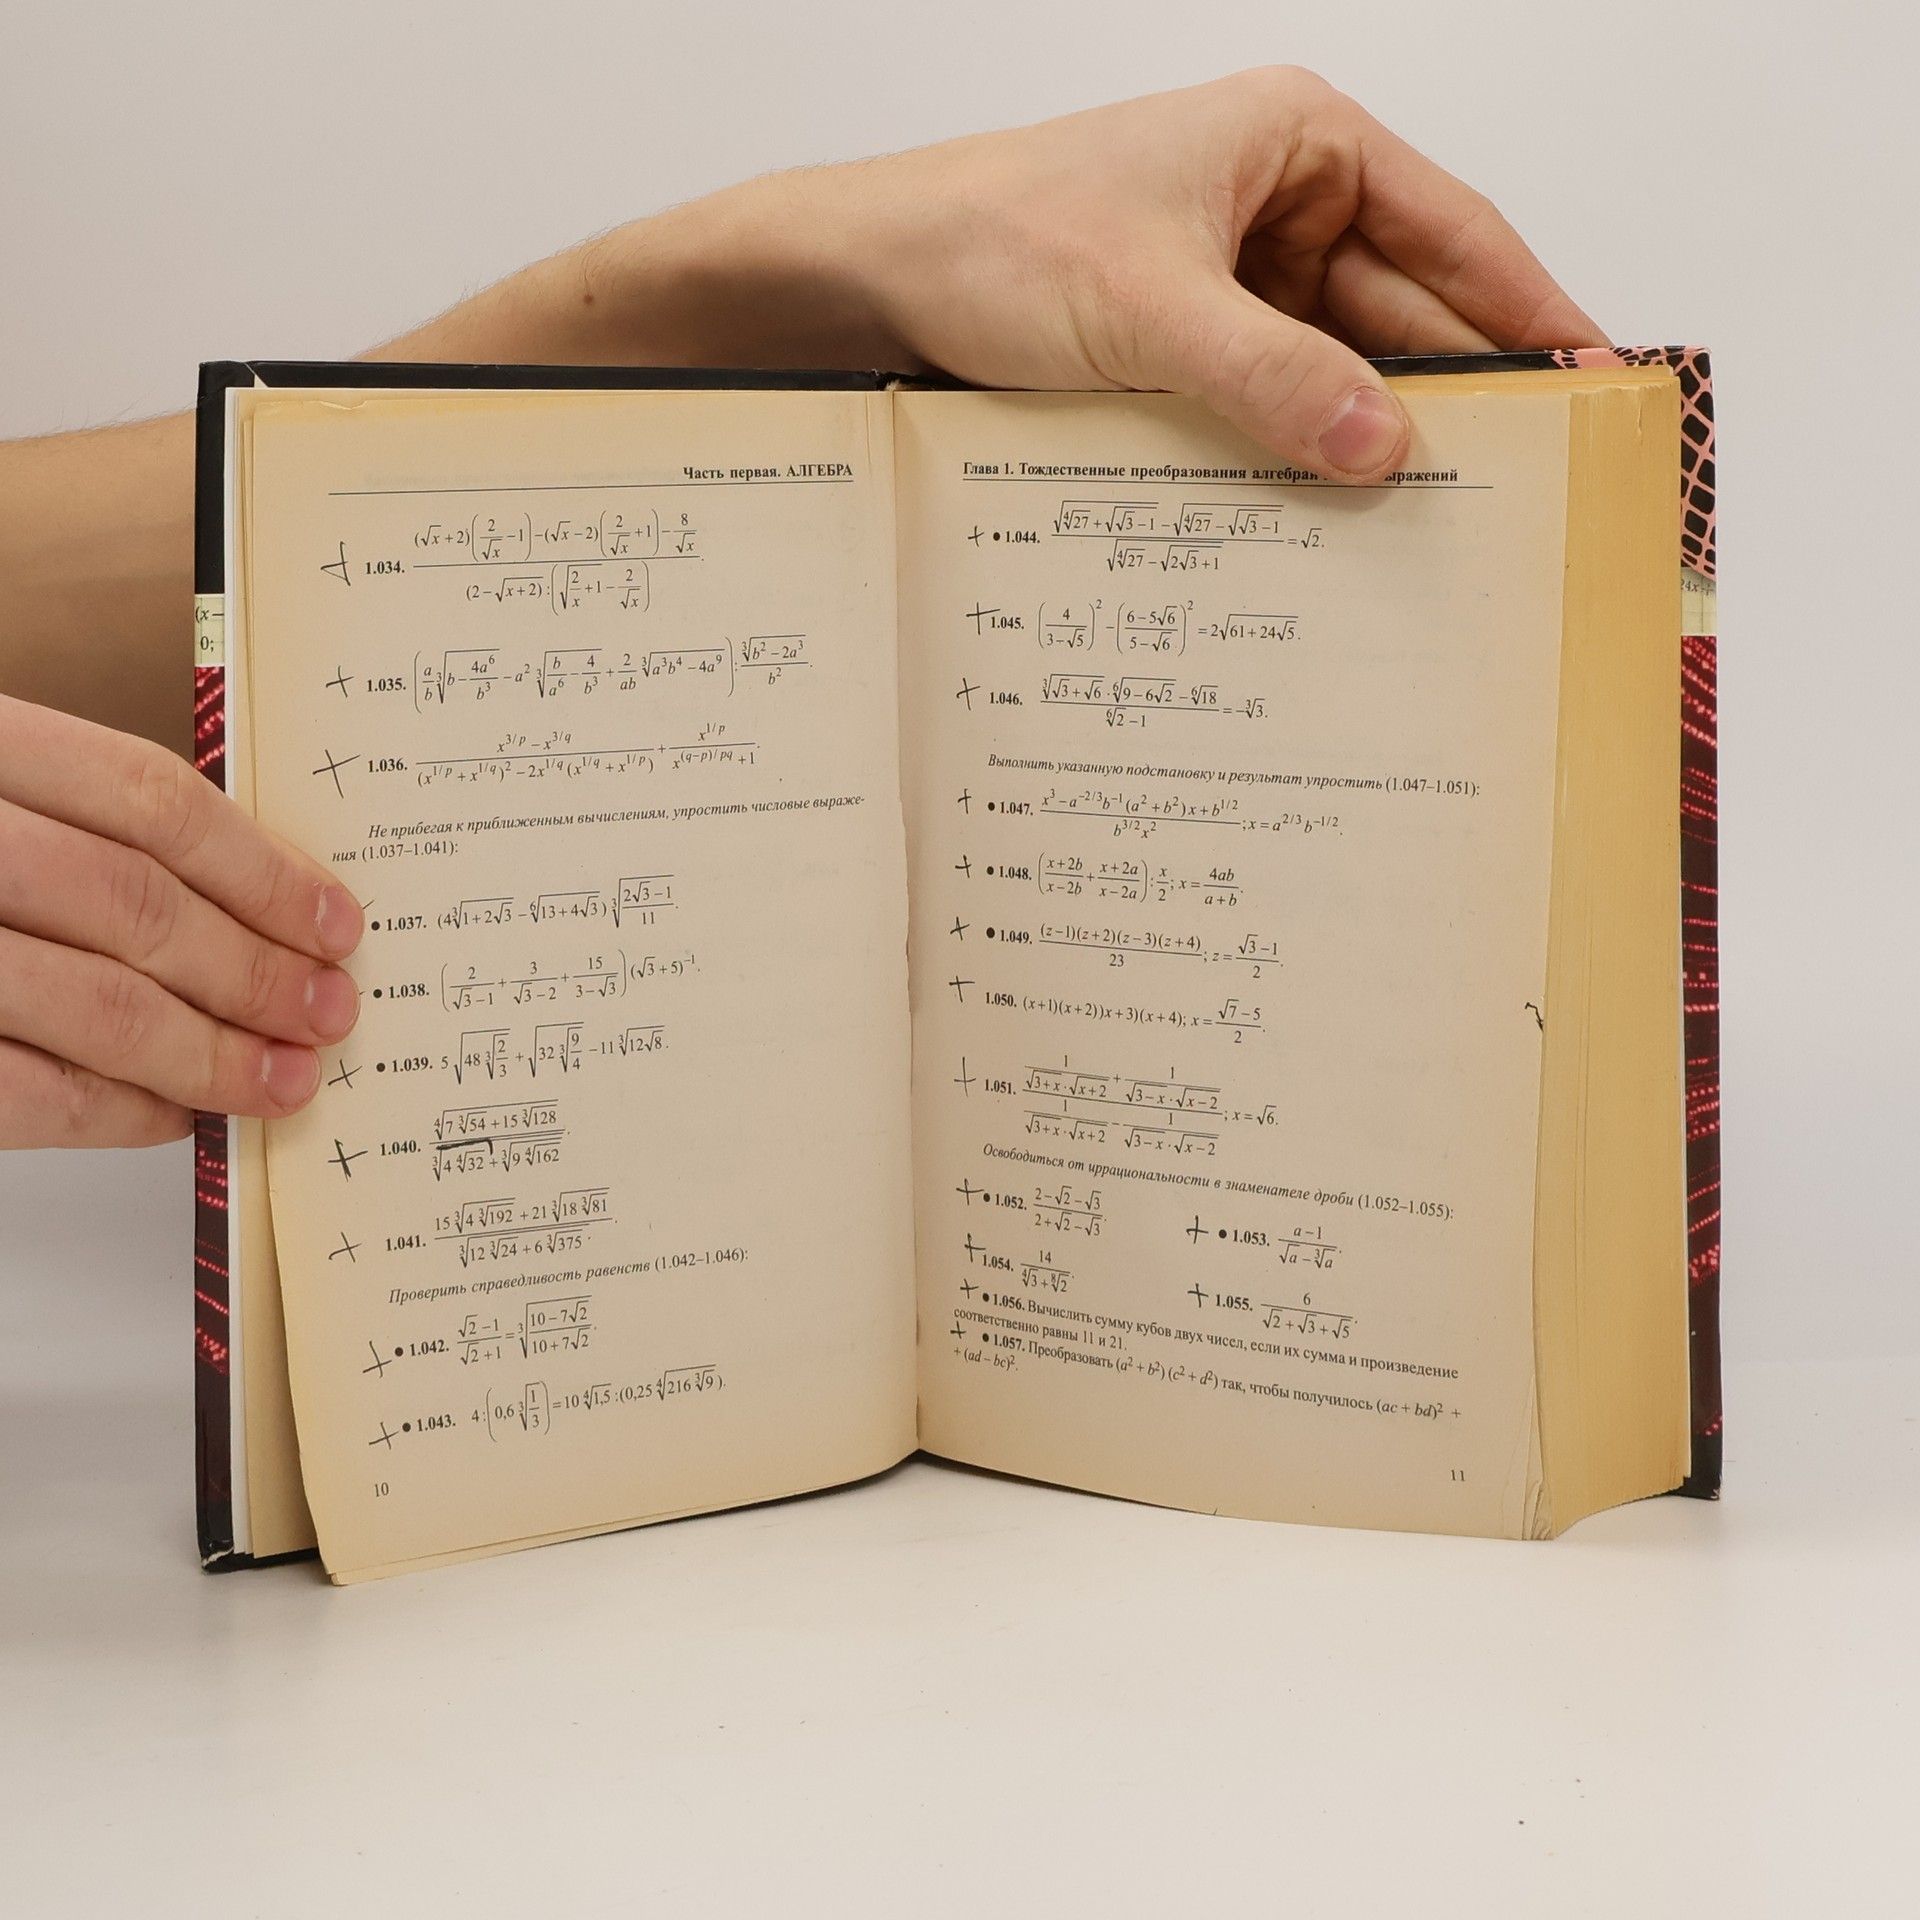 Часть первая. АЛГЕБРА
1.034. ((√x+2)(2/√x−1)−(√x−2)(2/√x+1)−8/√x)/((2−√(x+2)):(√(2/x+1)−2/√x)).
1.035. (a/b ∛(b−4a⁶/b³)−a² ∛(b/a⁶−4/b³)+2/(ab) ∛(a³b⁴−4a⁹)):∛(b²−2a³)/b².
1.036. (x^(3/p)−x^(3/q))/((x^(1/p)+x^(1/q))²−2x^(1/q)(x^(1/q)+x^(1/p)))+x^(1/p)/(x^((q−p)/pq)+1).
Не прибегая к приближенным вычислениям, упростить числовые выраже-
ния (1.037–1.041):
● 1.037. (4∛(1+2√3)−⁶√(13+4√3))∛((2√3−1)/11).
● 1.038. (2/(√3−1)+3/(√3−2)+15/(3−√3))(√3+5)⁻¹.
● 1.039. 5√(48∛(2/3))+√(32∛(9/4))−11∛(12√8).
1.040. ∜(7∛54+15∛128)/(∛(4∜32)+∛(9∜162)).
1.041. (15∛(4∛192)+21∛(18∛81))/(∛(12∛24)+6∛375).
Проверить справедливость равенств (1.042–1.046):
● 1.042. (√2−1)/(√2+1)=∛((10−7√2)/(10+7√2)).
● 1.043. 4:(0,6∛(1/3))=10∜1,5:(0,25∜(216∛9)).
10
Глава 1. Тождественные преобразования
● 1.044. (√(∜27+√(√3−1))−√(∜27−√(√3−1)))/√(∜27−√(2√3+1))=√2.
1.045. (4/(3−√5))²−((6−5√6)/(5−√6))²=2√(61+24√5).
1.046. (∛(√3+√6)·⁶√(9−6√2)−⁶√18)/(⁶√2−1)=−∛3.
Выполнить указанную подстановку и результат упростить (1.047–1.051):
● 1.047. (x³−a^(−2/3)b⁻¹(a²+b²)x+b^(1/2))/(b^(3/2)x²); x=a^(2/3)b^(−1/2).
● 1.048. ((x+2b)/(x−2b)+(x+2a)/(x−2a)):x/2; x=4ab/(a+b).
● 1.049. (z−1)(z+2)(z−3)(z+4)/23; z=(√3−1)/2.
1.050. (x+1)(x+2))x+3)(x+4); x=(√7−5)/2.
1.051. (1/(√(3+x)·√(x+2))+1/(√(3−x)·√(x−2)))/(1/(√(3+x)·√(x+2))−1/(√(3−x)·√(x−2))); x=√6.
Освободиться от иррациональности в знаменателе дроби (1.052–1.055):
● 1.052. (2−√2−√3)/(2+√2−√3). ● 1.053. (a−1)/(√a−∛a).
1.054. 14/(∜3+⁸√2). 1.055. 6/(√2+√3+√5).
● 1.056. Вычислить сумму кубов двух чисел, если их сумма и произведение
соответственно равны 11 и 21.
● 1.057. Преобразовать (a²+b²)(c²+d²) так, чтобы получилось (ac+bd)²+
+(ad−bc)².
11
(x–
0;